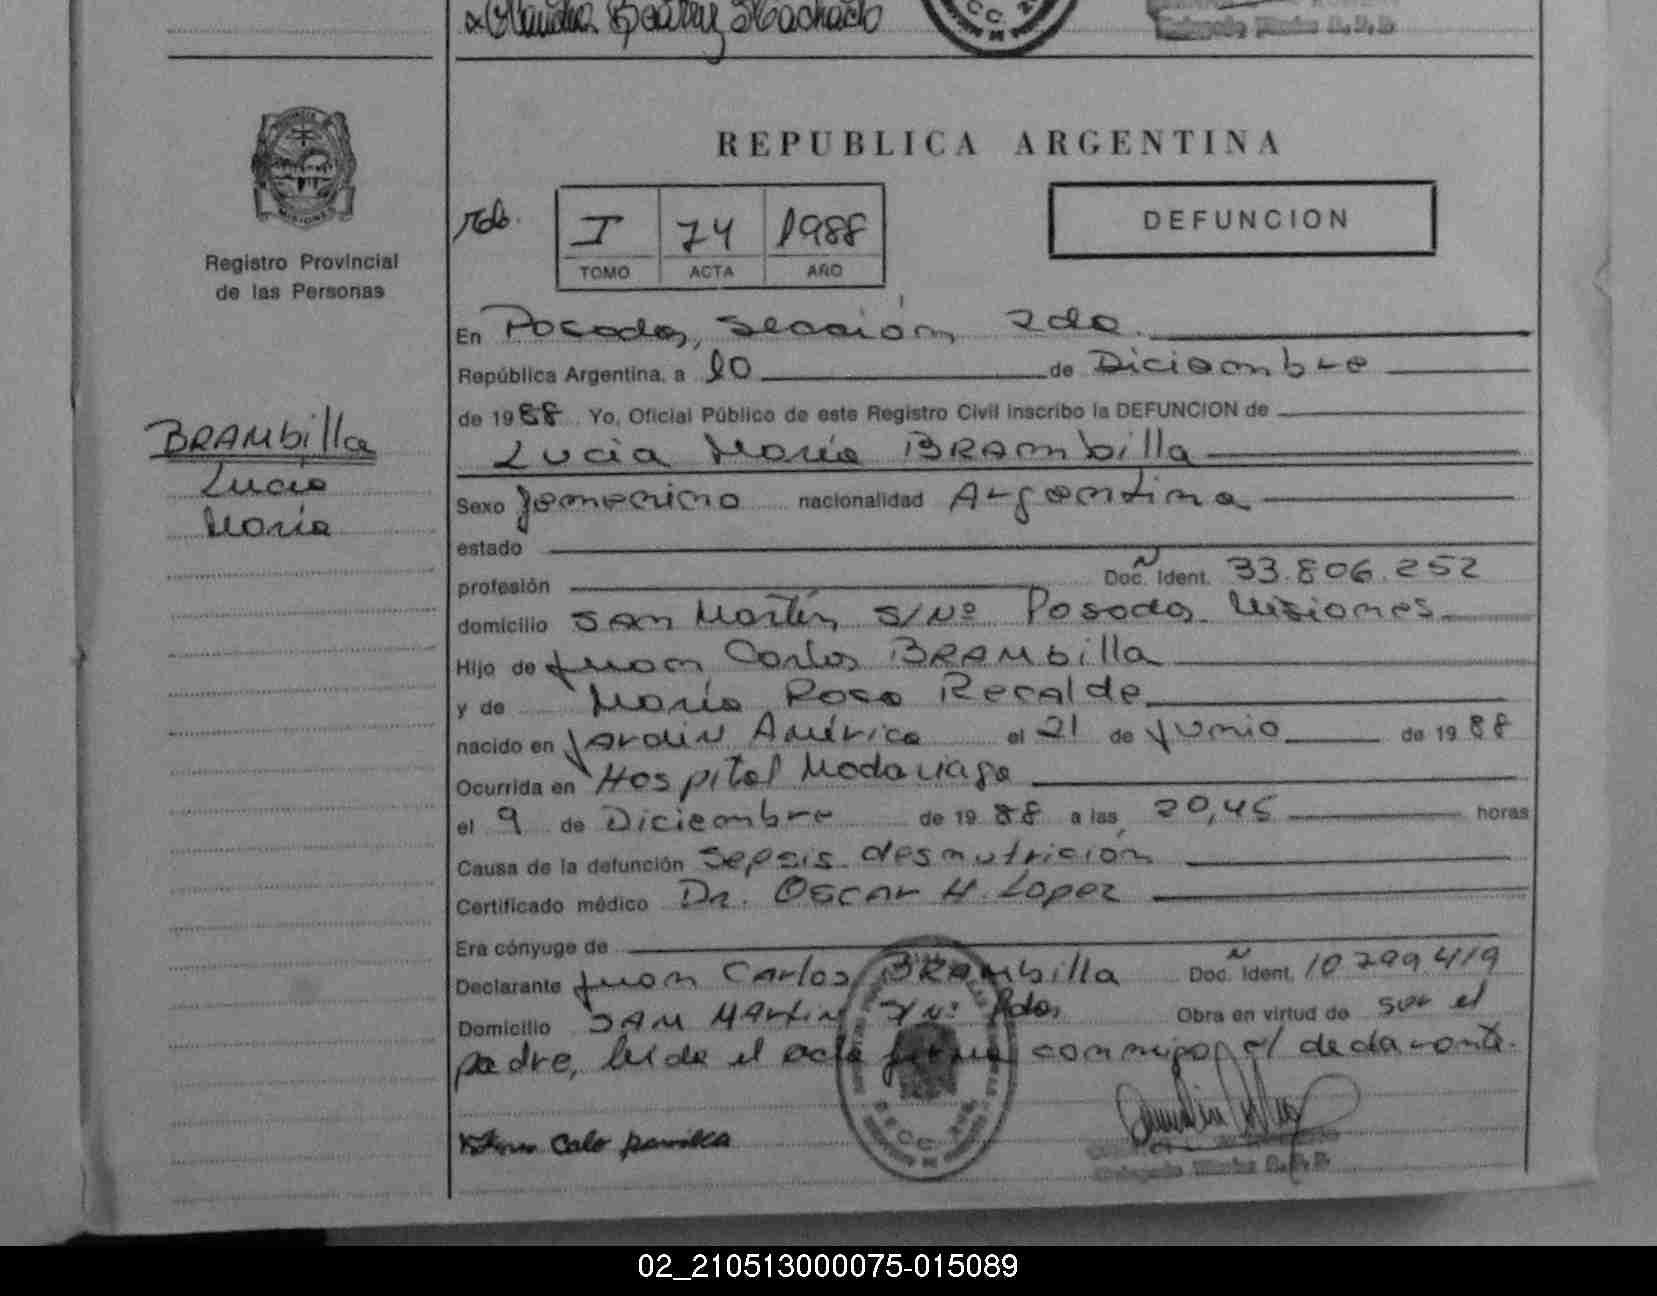 Claudia Beatriz Machado
REPUBLICA ARGENTINA
I 74 1988
TOMO ACTA AÑO
DEFUNCION
MISIONES
Registro Provincial
de las Personas
BRAMbilla
Lucia
María
En Posadas, Sección 2da.
República Argentina, a 10 de Diciembre
de 1988 Yo, Oficial Público de este Registro Civil inscribo la DEFUNCION de
Lucia María BRAMbilla
Sexo femenino nacionalidad Argentina
estado
profesión Doc. Ident. 33.806.252
domicilio SAN Martín S/Nº Posadas Misiones
Hijo de Juan Carlos BRAMbilla
y de María Rosa Recalde
nacido en Jardín América el 21 de Junio de 1988
Ocurrida en Hospital Madariaga
el 9 de Diciembre de 1988 a las 20,45 horas
Causa de la defunción Sepsis desnutrición
Certificado médico Dr. Oscar H. Lopez
Era cónyuge de
Declarante Juan Carlos BRAMbilla Doc. Ident. 10.299.419
Domicilio SAN MArtin S/Nº Pdas Obra en virtud de ser el
padre, leída el acta firma conmigo el declarante.
02_210513000075-015089